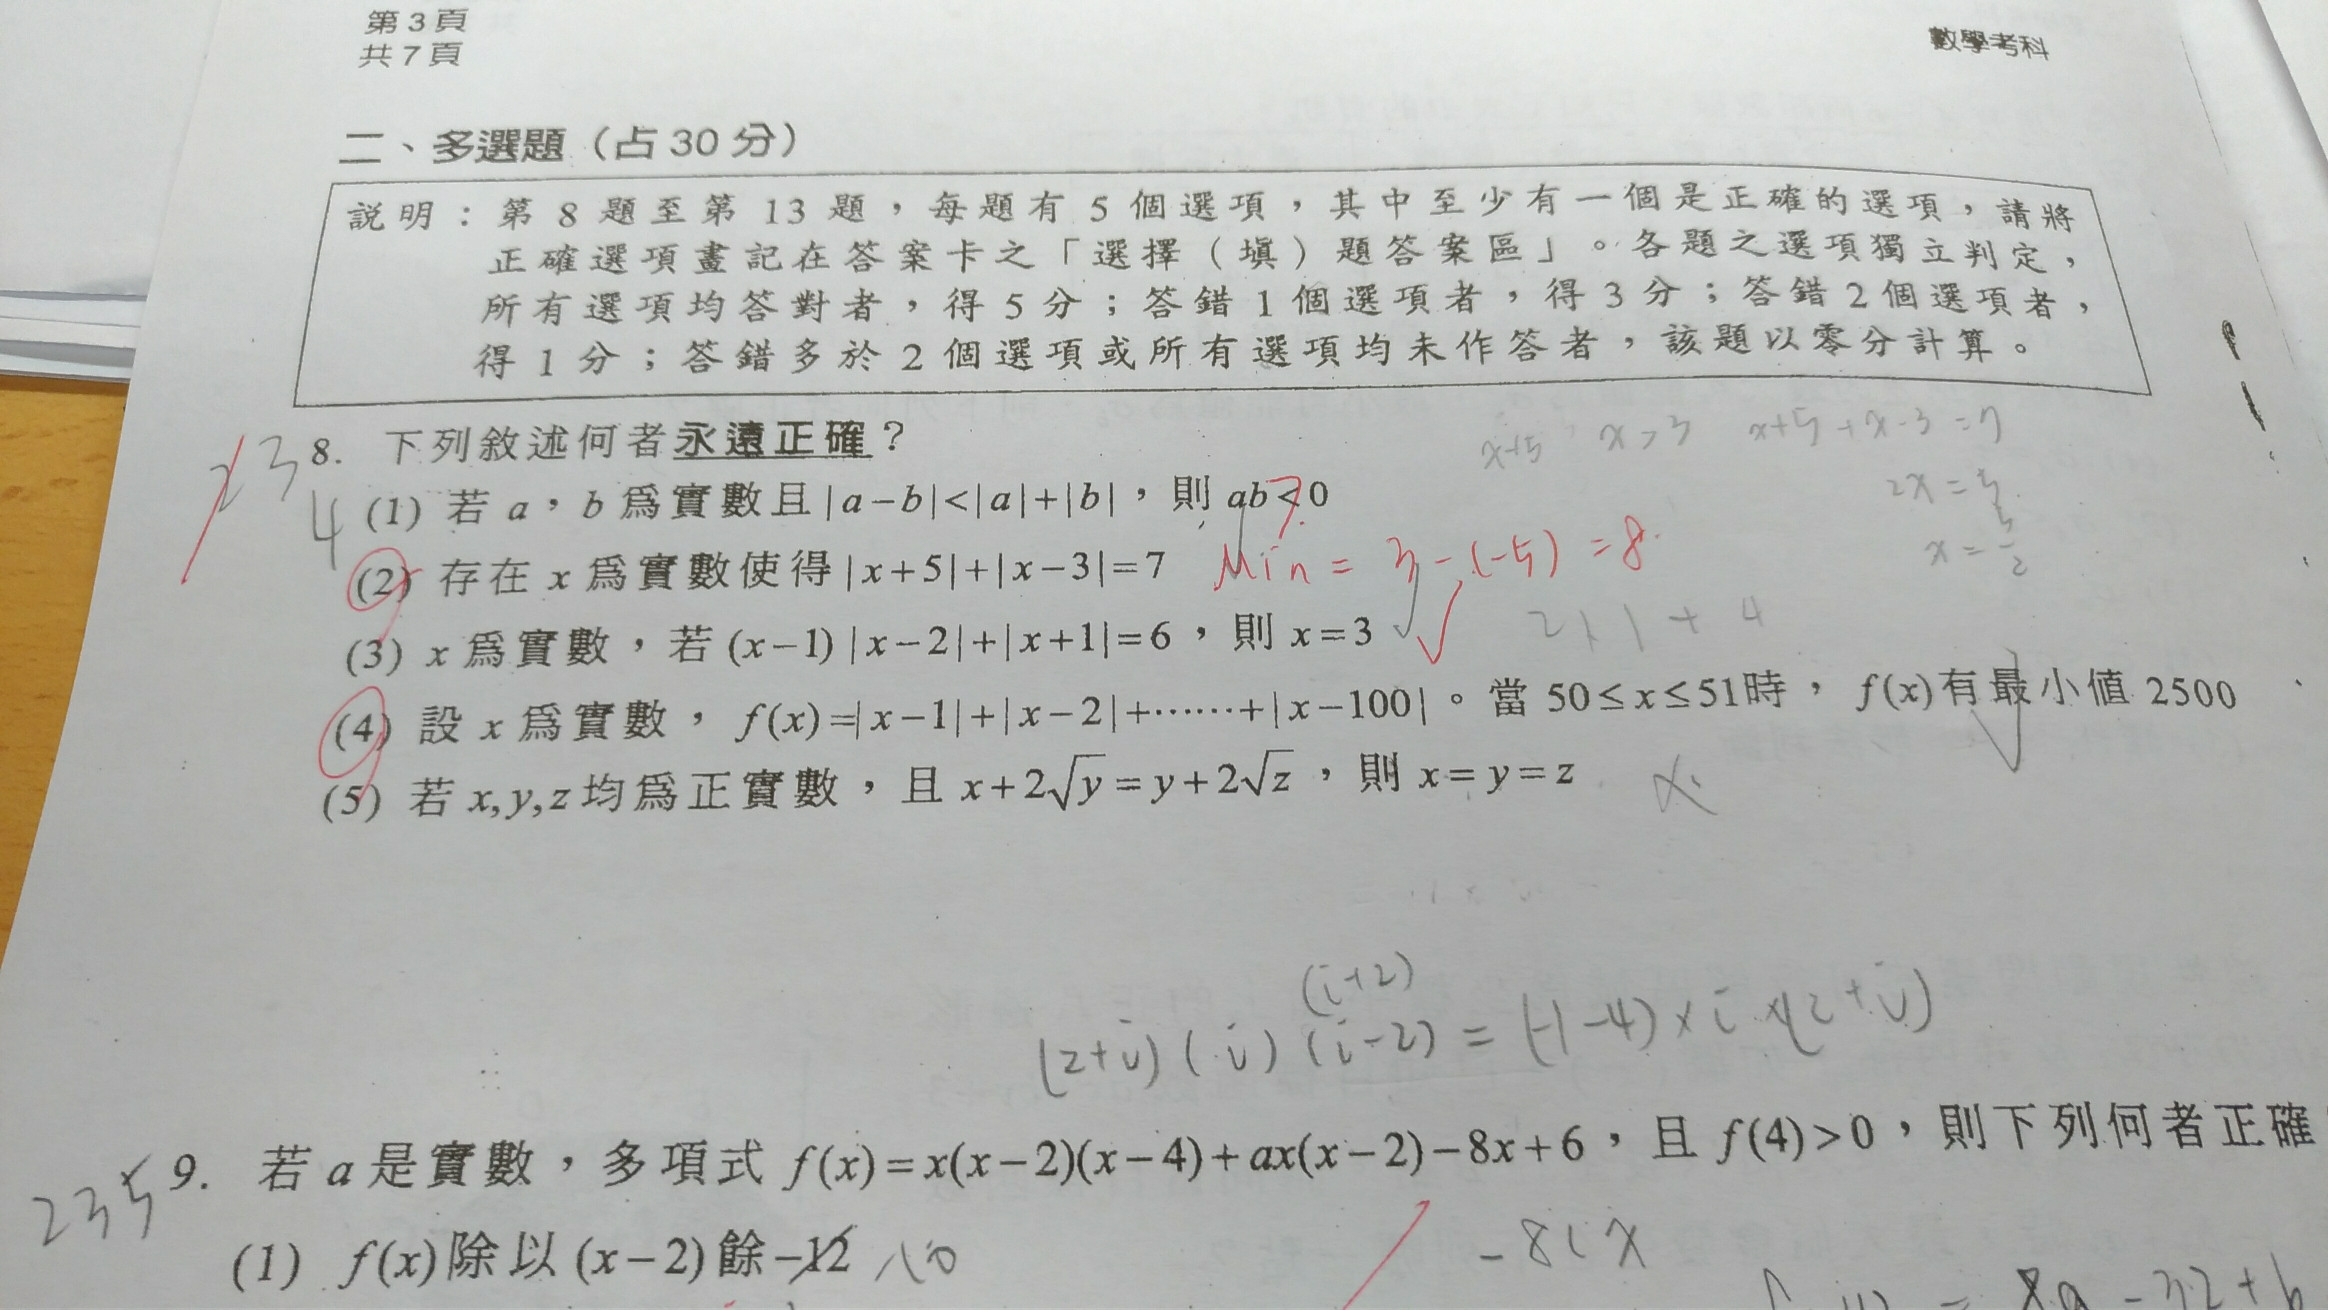 第3頁
共7頁
數學考科
二、多選題（占30分）
說明：第8題至第13題，每題有5個選項，其中至少有一個是正確的選項，請將
正確選項畫記在答案卡之「選擇（填）題答案區」。各題之選項獨立判定，
所有選項均答對者，得5分；答錯1個選項者，得3分；答錯2個選項者，
得1分；答錯多於2個選項或所有選項均未作答者，該題以零分計算。
x+5 x>3 x+5+x-3=7
23
4
8. 下列敘述何者永遠正確？
2x=5
x=5/2
(1) 若a，b為實數且|a−b|<|a|+|b|，則ab<0
(2) 存在x為實數使得|x+5|+|x−3|=7
Min = 3-(-5) = 8
(3) x為實數，若(x−1)|x−2|+|x+1|=6，則x=3
2×1+4
(4) 設x為實數，f(x)=|x−1|+|x−2|+……+|x−100|。當50≤x≤51時，f(x)有最小值2500
(5) 若x,y,z均為正實數，且x+2√y=y+2√z，則x=y=z
(i+2)
(2+i)(i)(i-2)=(-1-4)×i×(2+i)
235
9. 若a是實數，多項式f(x)=x(x−2)(x−4)+ax(x−2)−8x+6，且f(4)>0，則下列何者正確
(1) f(x)除以(x−2)餘−12
-10
-8(x
= 8a-32+6